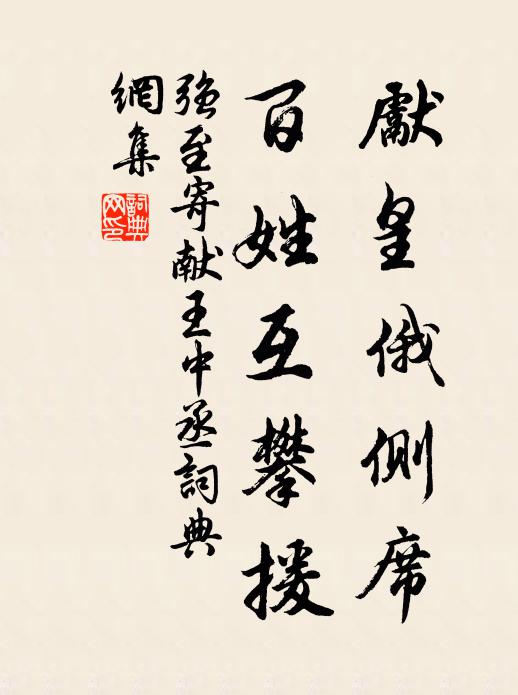 獻皇俄側席
百姓互攀援
強至寄献王中丞詞典
網集
詞典
网印